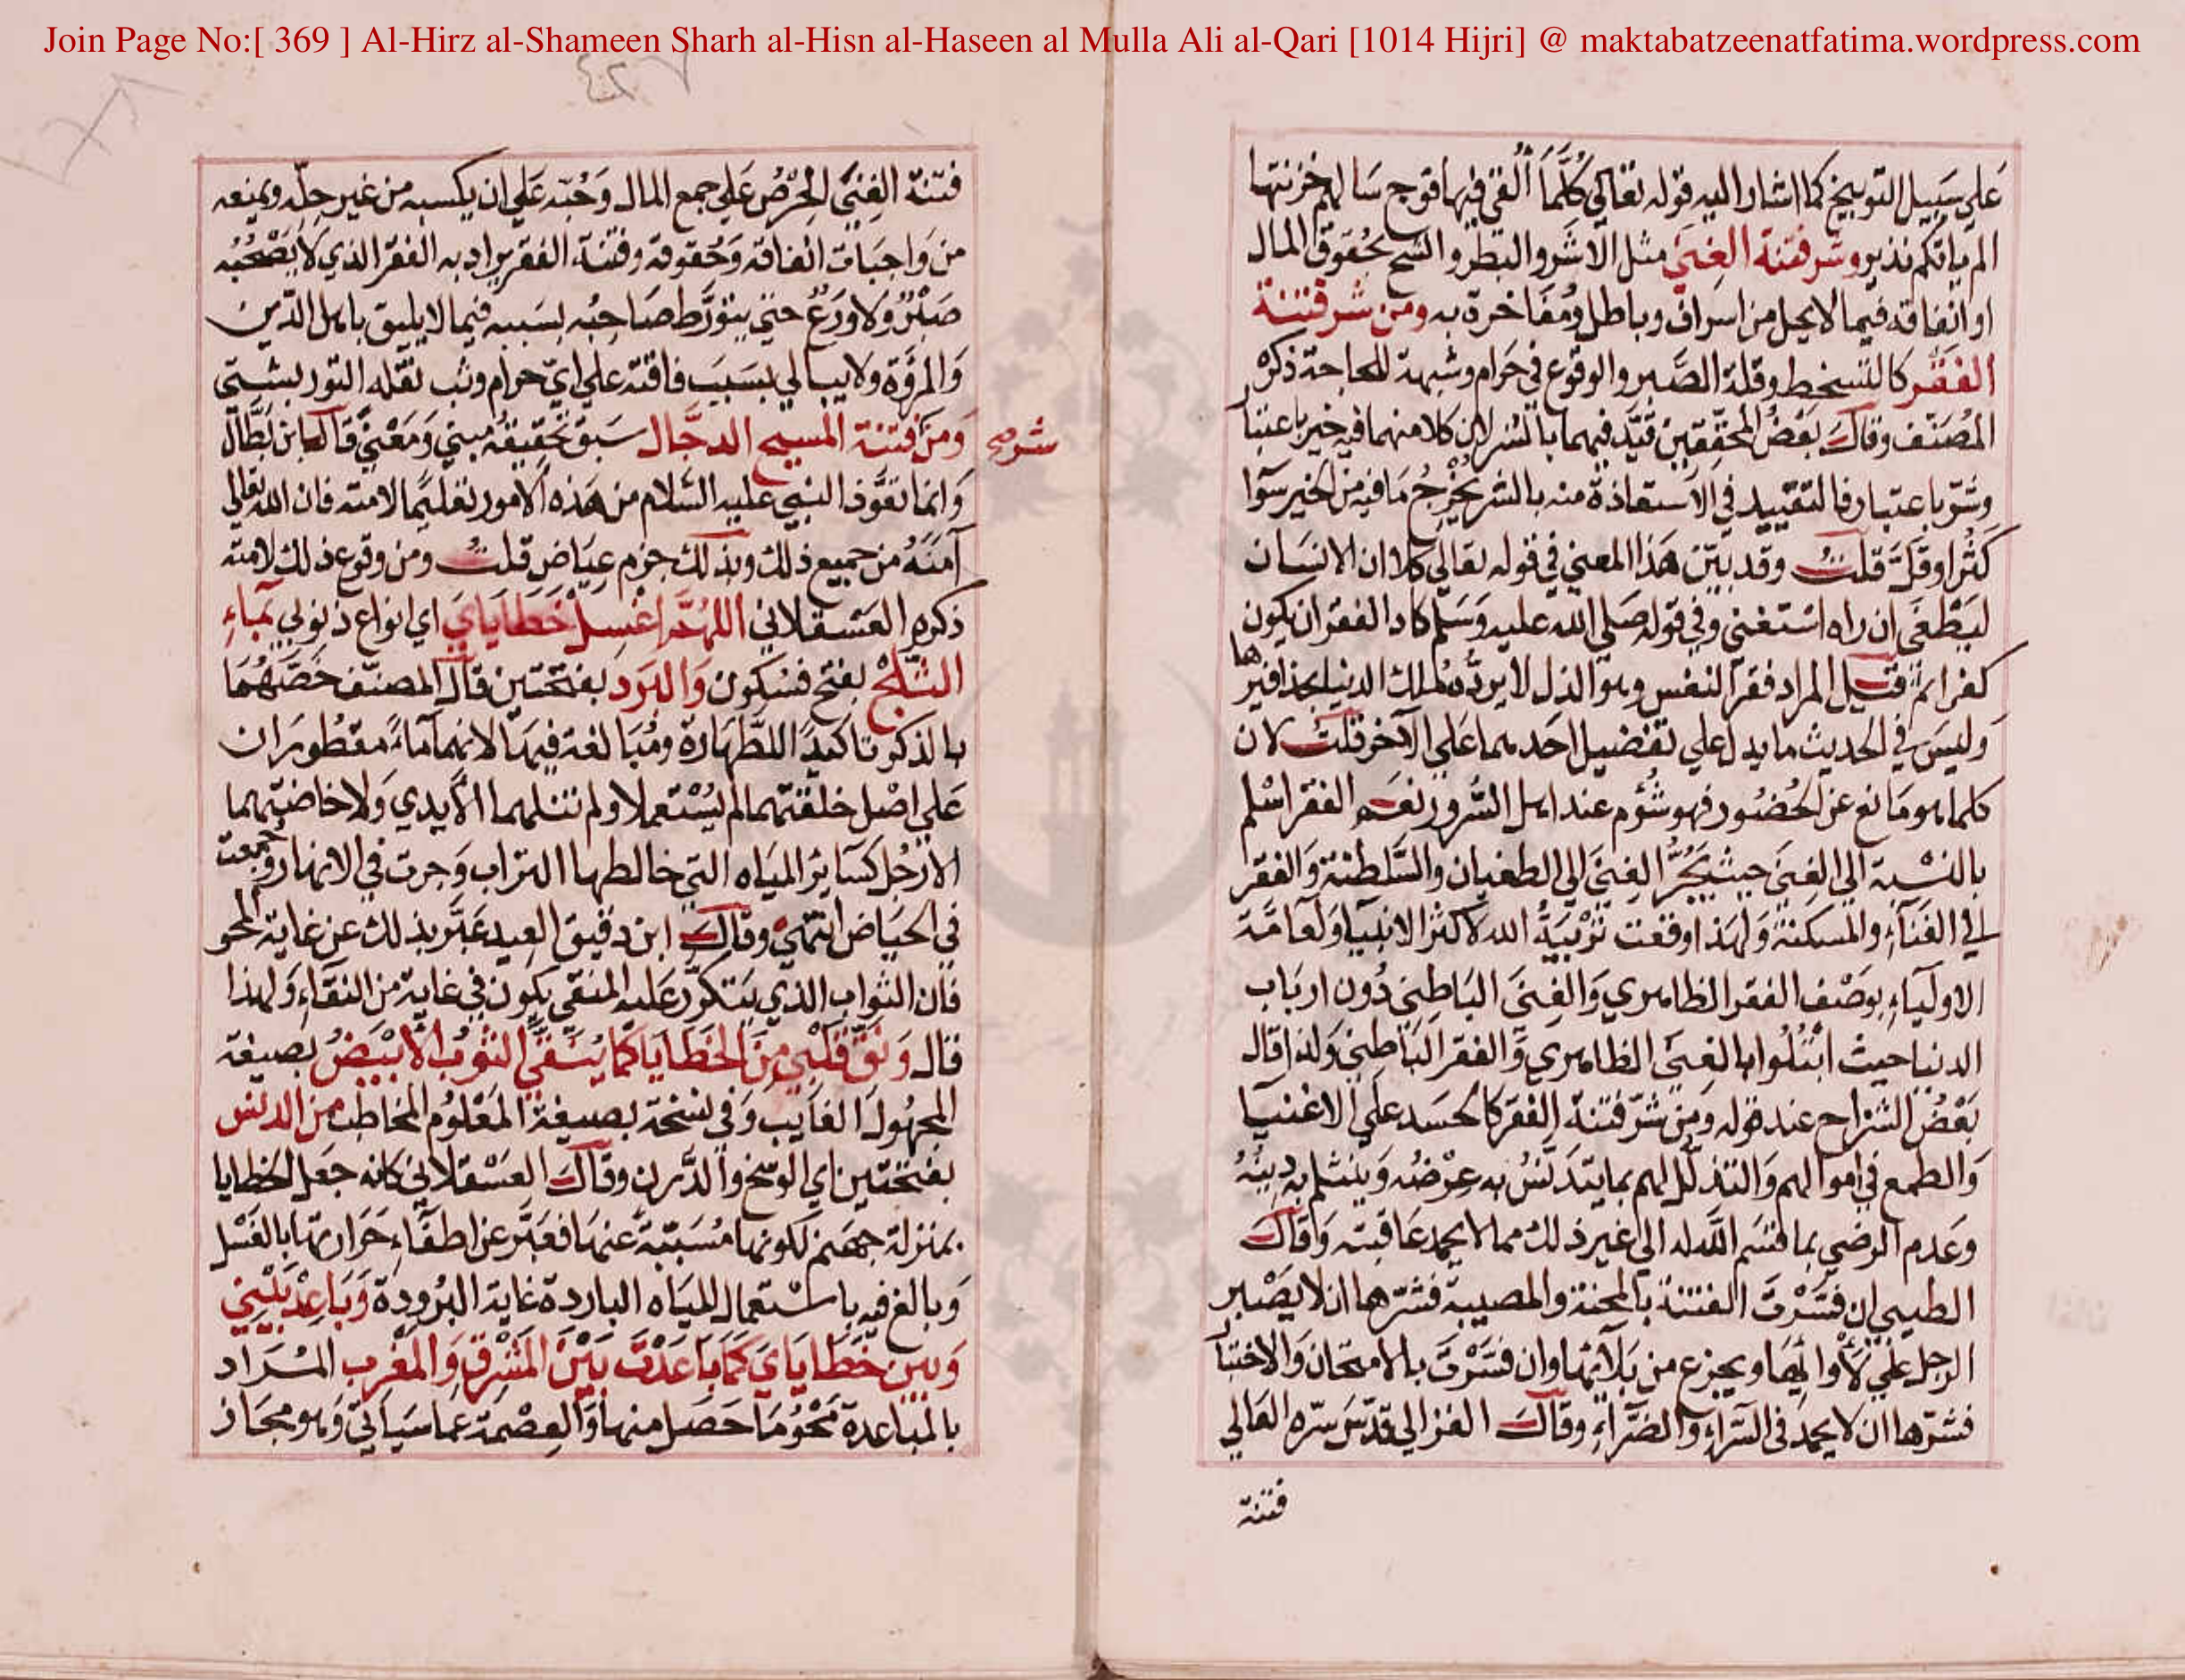 Join Page No:[ 369 ] Al-Hirz al-Shameen Sharh al-Hisn al-Haseen al Mulla Ali al-Qari [1014 Hijri] @ maktabatzeenatfatima.wordpress.com
٤٢٧
عَلي سَبيل التوبيخ كما اشار اليه قوله تعالى كُلَّمَا أُلقي فيها فوج سَالهم خزنتها
الم ياتكم نذير وشر فتنة الغِنَى مثل الاشَر والبَطر والشح بحُقوق المال
او انفاقه فيما لا يحل من اسراف وباطل ومُفاخرة به ومن شر فتنة
الفَقر كالتسخط وقلة الصَّبر والوقوع في حَرام وشبهة للحاجة ذكره
المُصَنّف وقال بَعْضُ المحقّقين قيّد فيهما بالشر لان كلا منهما فيه خير باعتبار
وشر باعتبار فالتقييد في الاستعاذة منه بالشر يُخْرِجُ مَا فيه من الخير سَوا
كَثُر او قَلَّ قلتُ وقد بَيّن هَذا المعني في قوله تعالي كلا ان الانسَان
ليَطْغَى ان راه اسْتغنى وفي قوله صَلى الله عليه وَسَلم كاد الفقر ان يكون
كفرا ثم قيل المراد فقر النفس وهو الذل لا يردّه مُلك الدنيا بحذافيرها
وَليسَ في الحديث ما يدل علي تفضيل احَدهما عَلي الآخر قلتُ لان
كلما هو مَانع عن الحُضُور فهو شُؤم عند اهل السُّرور نعم الفقر اسْلم
بالنسْبة الي الغِنَى حيث يَجُرُّ الغِنَى الي الطغيان والسَّلطنة وَالفقر
الي الفَنَاءِ والمَسكنة وَلهذا وقعت تَرْبيَةُ الله لاكثر الانبيا وَلعامّة
الاوليَاءِ بوَصْف الفقر الظاهري وَالغِنَى البَاطِني دُون ارباب
الدنيا حيث ابْتُلُوا بالغِنَى الظاهري وَالفقر البَاطِني وَلذا قال
بَعْضُ الشراح عند قوله وَمن شرّ فتنة الفقر كالحسَد علي الاغنيا
وَالطمع في اموالهم وَالتذلّل لهم بما يتدَنّسُ به عِرْضه وَينثلم به دينُهُ
وَعَدم الرضي بما قسَم اللّه له الي غير ذلك مما لا يحمد عَاقبته وَقال
الطيبي ان فسَّرْتَ الفتنة بالمحنة والمصيبة فشرّها ان لا يَصْبر
الرجل علي لأْوائِهَا ويجزع من بَلَائها وان فسَّرْتَ بالامتحَان وَالاختبار
فشرّها ان لا يحمد في السَّراءِ وَالضّراءِ وقال الغزالي قدّسَ سرّه العَالي
فتنة
فتنة الغِنَى الحِرْصُ عَلى جمع المال وَحُبّه عَلي ان يكسبه من غير حِلّه ويمنعه
من وَاجبَات انفاقه وَحُقوقه وفتنة الفقر يراد به الفقر الذي لا يَصْحَبُه
صَبْرٌ وَلا وَرَعٌ حتي يتورَّط صَاحِبُه بسَببه فيما لا يليق باهل الدّين
وَالمرُوّة ولا يبالي بسَبَب فاقته علي ايّ حرام وثب نقله التوربشتي
وَمن فتنة المسيح الدجَّال سبق تحقيقه مبني وَمَعْني قال ابن بَطّال
شر صح
وَانما تعَوّذ النبي عليه السّلام من هَذه الامور تعليمًا لامته فان الله تعالي
آمنَهُ من جميع ذلك وبذلك جزم عِيَاض قلتُ ومن وقوع ذلك لامته
ذكره العَسْقلاني اللهُمَّ اغسِل خَطايَايَ اي انواع ذنوبي بمَاءِ
الثَّلْجِ بفتح فسكون وَالبَرَدِ بفتحتين قال المصنّف خَصّهُمَا
بالذكر تاكيدًا للطّهَارة ومُبَالغة فيهَا لانهما مَاءان مقطُورَان
عَلي اصْل خلقتهما لم يُسْتَعملا ولم تنلهما الأيدي وَلا خاضتهما
الارْجُل كسَائر الميَاه التي خالطها التراب وَجرت في الانهار وَجمعت
في الحيَاض انتهي وقال ابن دقيق العيد عَبّر بذلك عن غاية المحو
فان الثواب الذي يتكرّر عَليه المنقي يكون في غاية من النقَاء وَلهذا
قال وَنَقّ قَلْبي مِنَ الخَطايَا كمَا يُنَقَّى الثوبُ الأبْيَضُ بصيغة
المجهُول الغايب وَفي نسخة بصيغة المَعْلوُم المخاطب من الدنس
بفتحتين اي الوسخ والدَّرن وقال العَسْقلاني كانه جَعل الخطايا
بمنزلة جهنم لكونها مُسَبّبَةً عنهَا فعَبّر عن اطفَاءِ حَرارتها بالغَسْل
وَبالغ فيه باسْتعمال المياه الباردة غاية البُرودة وَبَاعِدْ بَيْني
وَبين خَطايَايَ كمَا بَاعَدْتَ بَيْنَ المَشْرقِ وَالمَغْرب المُرَاد
بالمبَاعدة مَحْوُ مَا حَصَل منها وَالعِصْمة عما سَيَاتي وَهو مجَاز